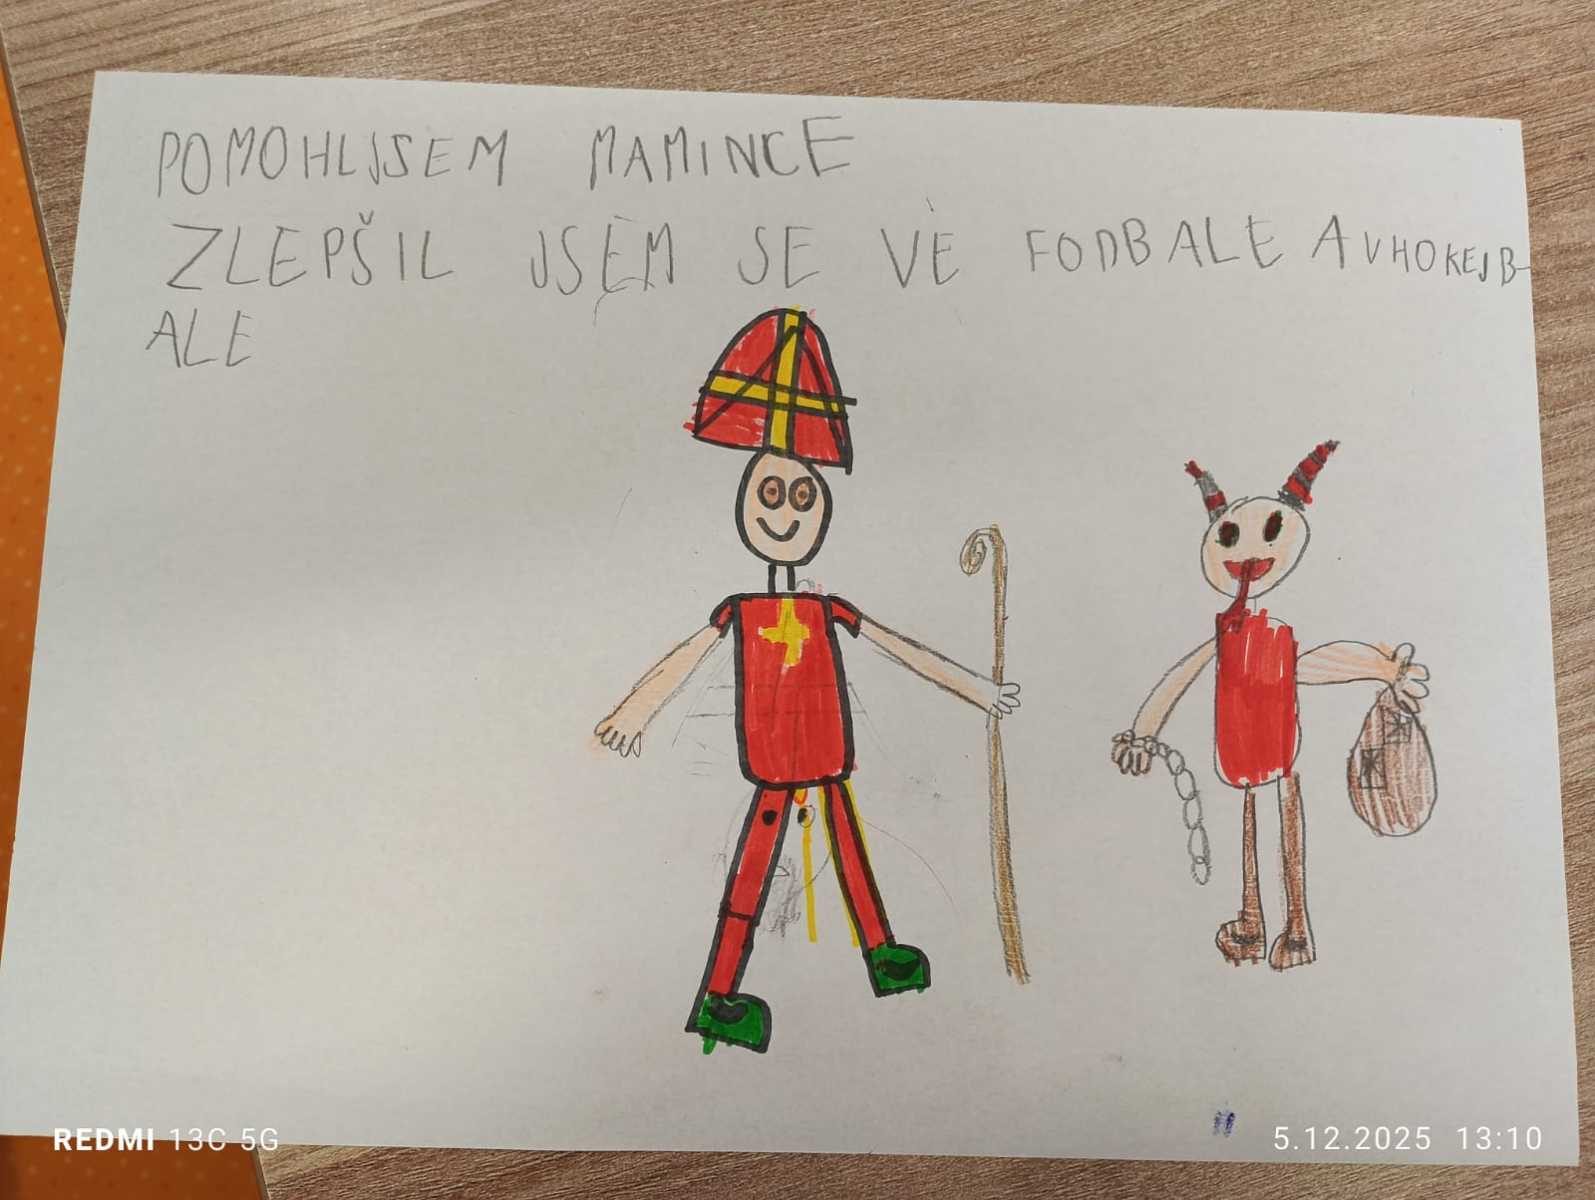 POMOHLJSEM MAMINCE
ZLEPŠIL JSEM SE VE FODBALE A VHOKEJB-
ALE
REDMI 13C 5G
5.12.2025 13:10